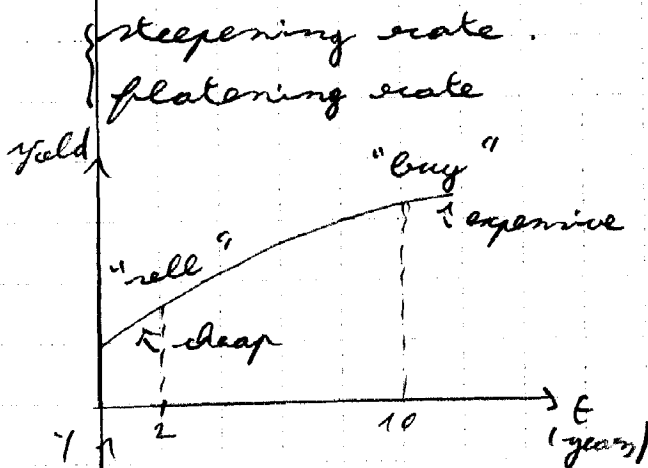 steepening rate.
flatening rate
Yield
"buy"
expensive
"sell"
cheap
2
10
t
(years)